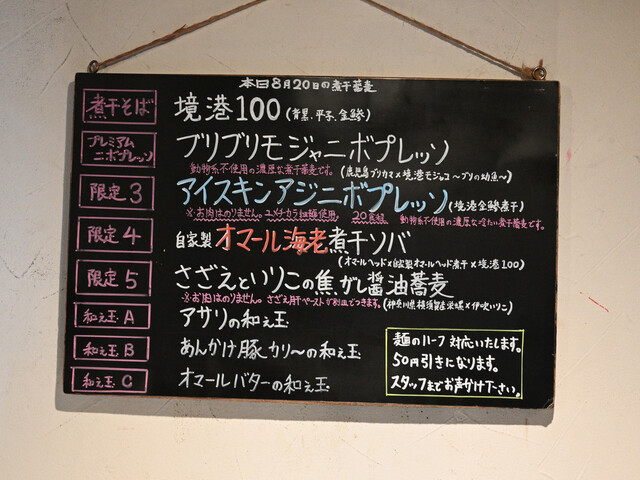 本日8月20日の煮干蕎麦
煮干そば 境港100 (青黒、平子、金鯵)
プレミアムニボプレッソ ブリブリモジャニボプレッソ
動物系不使用の濃厚な煮干蕎麦です。 (鹿児島ブリカマ×境港モジャコ〜ブリの幼魚〜)
限定3 アイスキンアジニボプレッソ (境港金鯵煮干)
※お肉はのりません。ユメチカラ細麺使用 20食程 動物系不使用の濃厚な冷たい煮干蕎麦です。
限定4 自家製オマール海老煮干ソバ
(オマールヘッド×自家製オマールヘッド煮干×境港100)
限定5 さざえといりこの焦がし醤油蕎麦
※お肉はのりません。さざえ肝ペーストが別皿でつきます。 (神奈川県横須賀産栄螺×伊吹いりこ)
和え玉A アサリの和え玉
和え玉B あんかけ豚カリ〜の和え玉
和え玉C オマールバターの和え玉
麺のハーフ対応いたします。
50円引きになります。
スタッフまでお声かけ下さい。